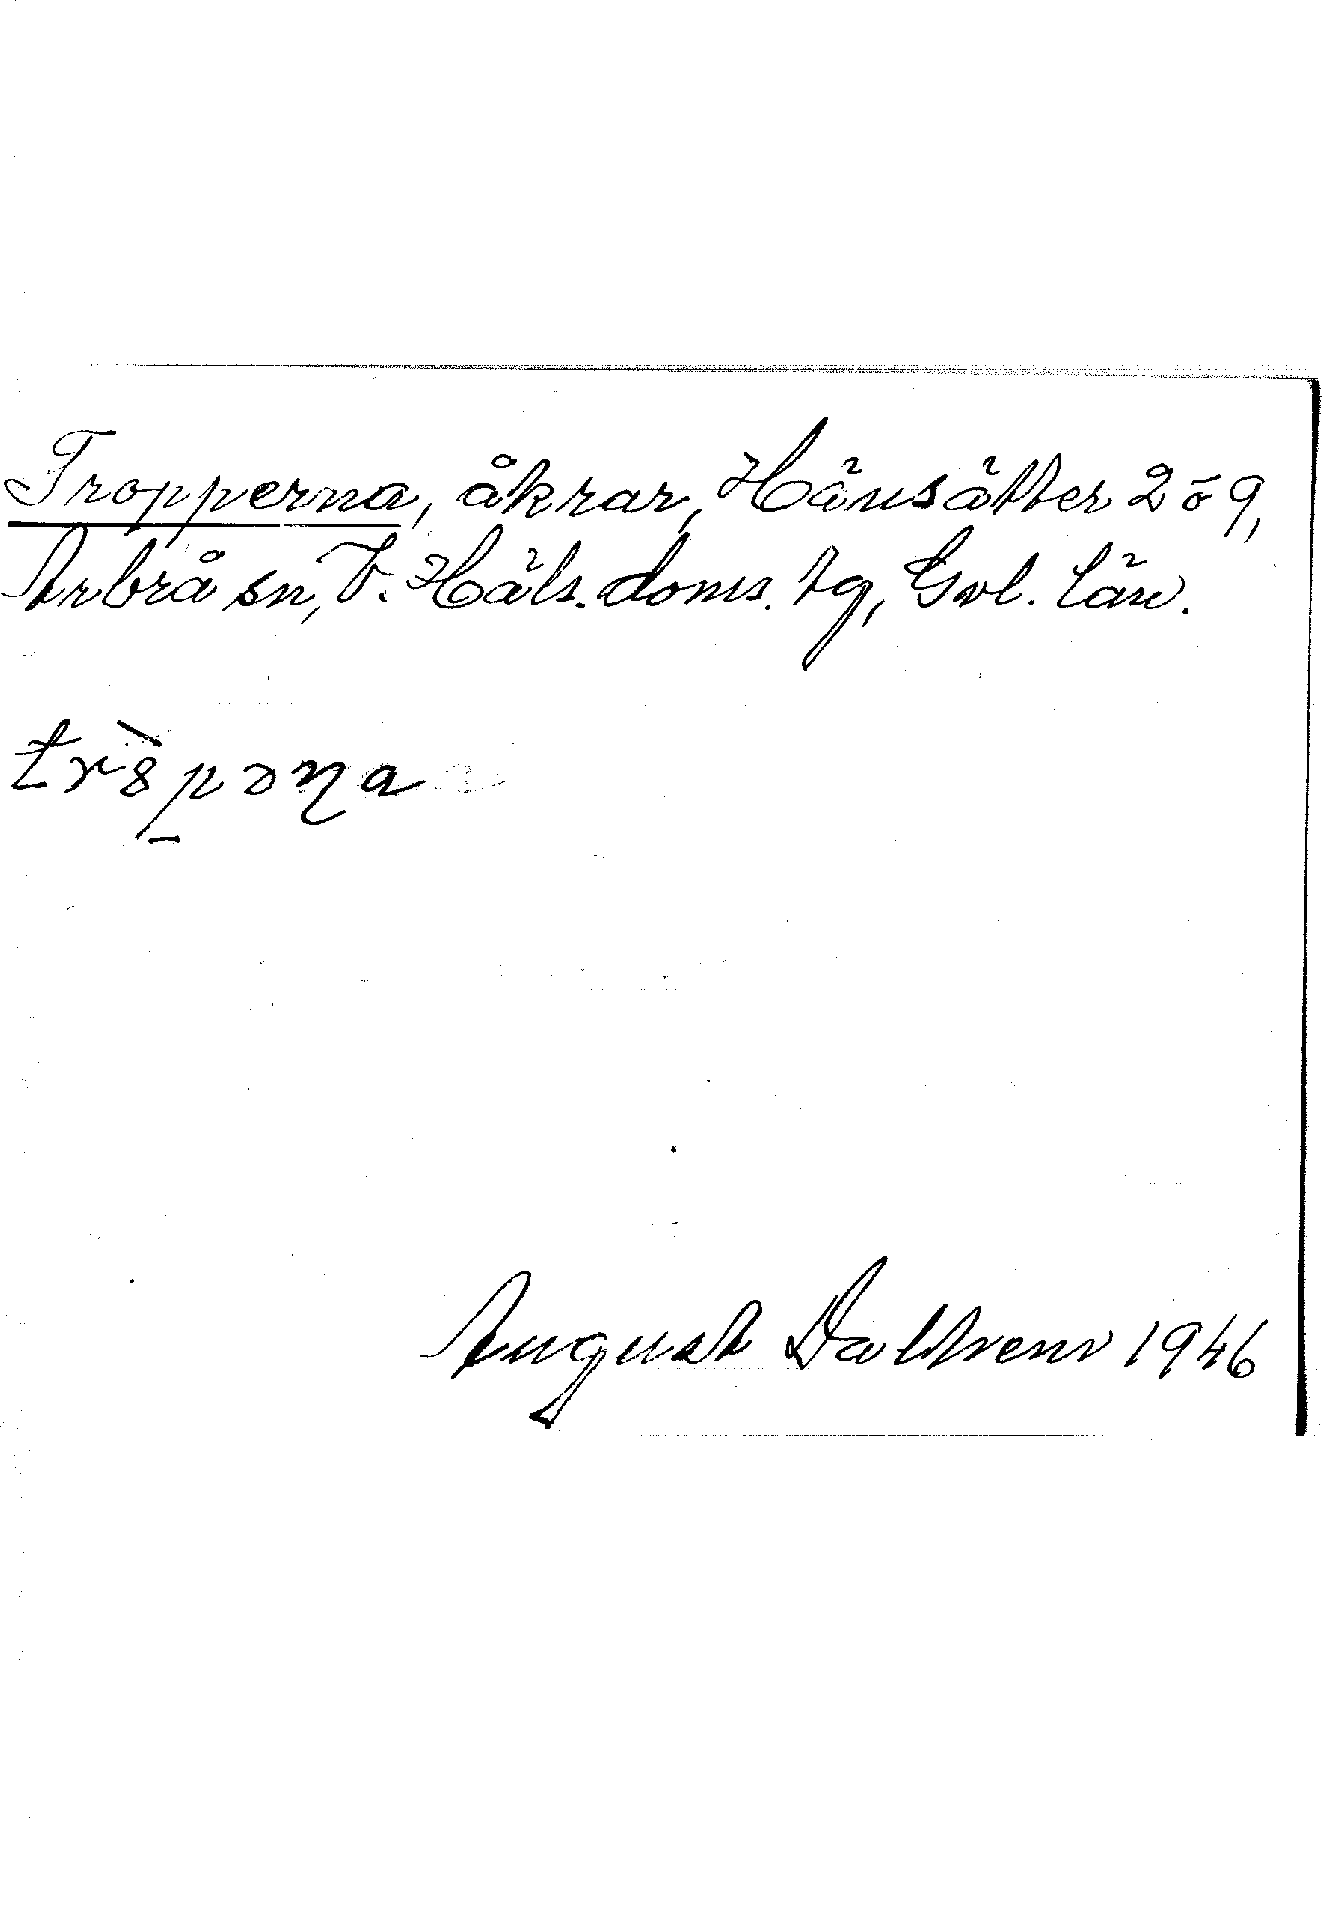 Tropperna, åkrar, Hänsätter 2 o 9,
Arbrå sn, V. Häls. doms. tg, Gvl. län.
tr8̀p̱əŋa
August Dahtrem 1946